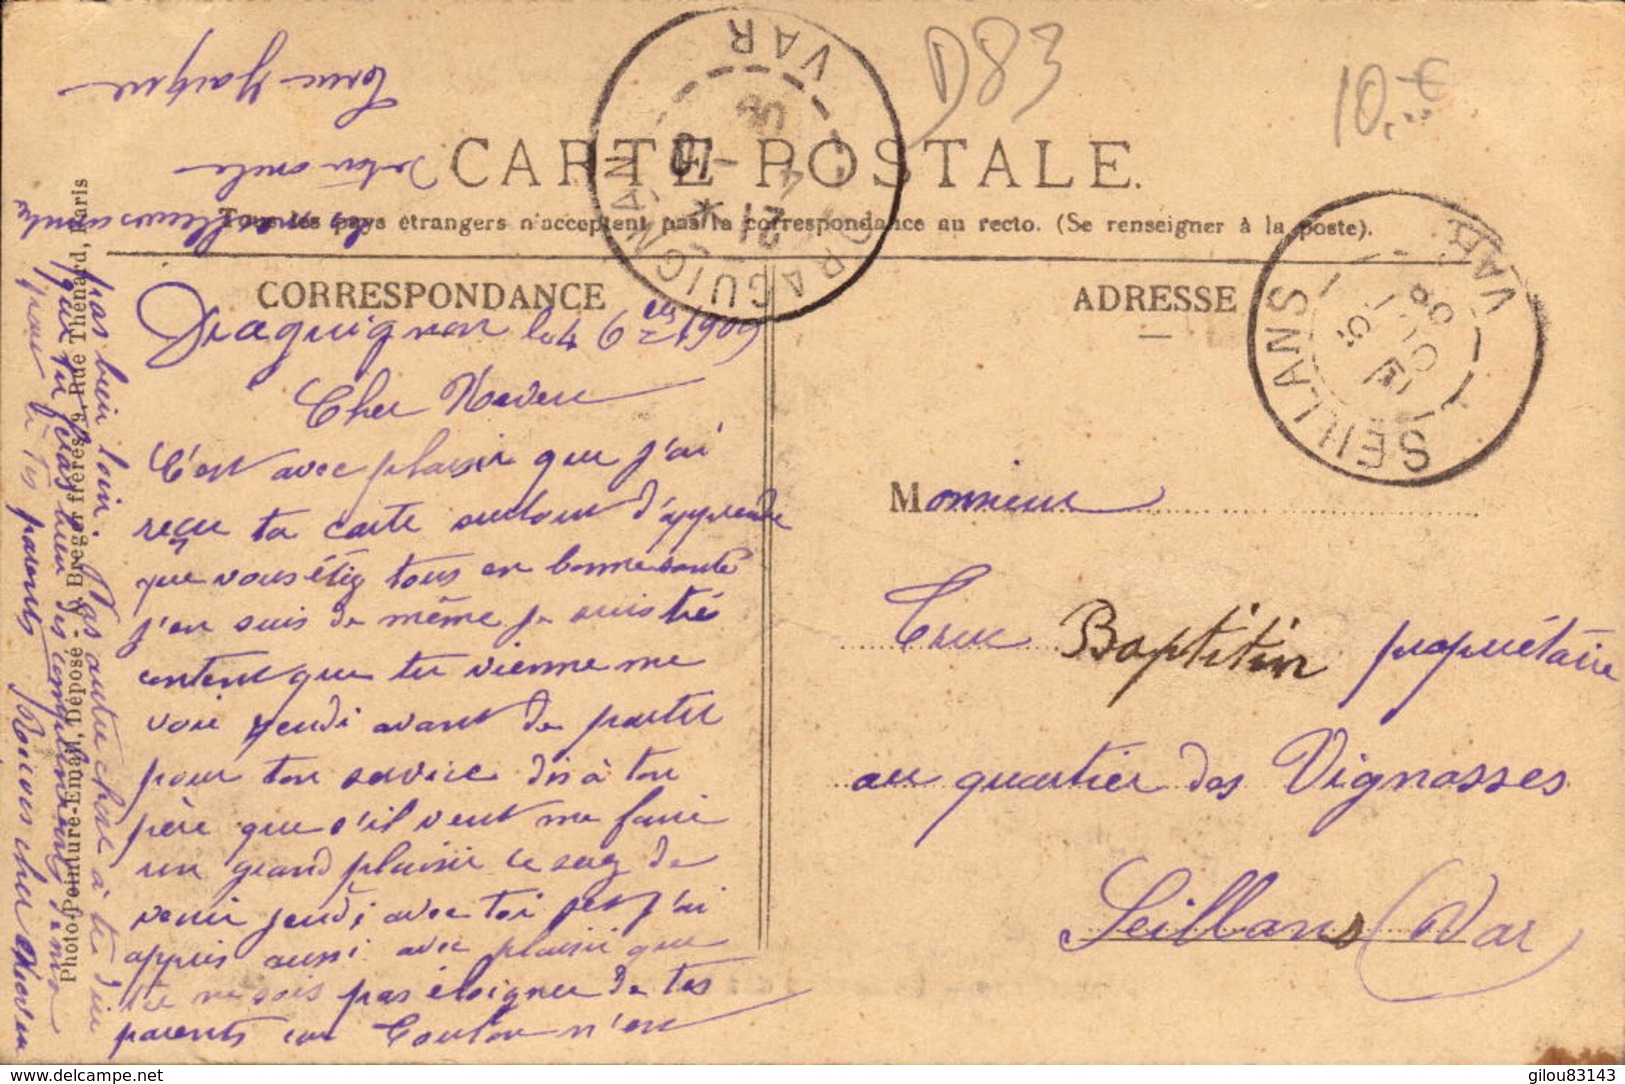 D83
10.-€
CARTE POSTALE.
Tous les pays étrangers n'acceptent pas la correspondance au recto. (Se renseigner à la poste).
CORRESPONDANCE
ADRESSE
DRAGUIGNAN
VAR
SEILLANS
VAR
Draguignan le 4 1909
Cher Neveu
C'est avec plaisir que j'ai
reçu ta carte surtout d'apprendre
que vous étiez tous en bonne santé
j'en suis de même je suis très
content que tu vienne me
voir jeudi avant de partir
pour ton service dis à ton
père que s'il veut me faire
un grand plaisir ce de
venir jeudi avec toi et j'ai
appris aussi avec plaisir que
tu ne sois pas éloigner de tes
parents car Toulon n'est
pas bien loin. Pas autre chose à te dire
que tu fras bien des compliments
pour à tes parents Recois cher Neveu
les meilleurs
de ton oncle
Truc
Monsieur
Truc Baptistin propriétaire
au quartier des Vignasses
Seillans (Var)
Photo-Peinture-Email, Déposé - A. Breger frères, 9, Rue Thénard, Paris
delcampe.net
gilou83143